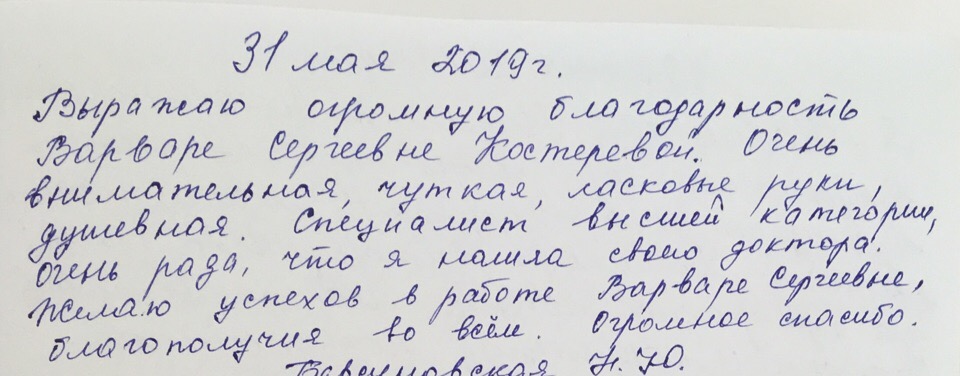 31 мая 2019г.
Выражаю огромную благодарность
Варваре Сергеевне Костеревой. Очень
внимательная, чуткая, ласковые руки,
душевная. Специалист высшей категории,
очень рада, что я нашла свою доктора.
Желаю успехов в работе Варваре Сергеевне,
благополучия во всём. Огромное спасибо.
Н.Ю.